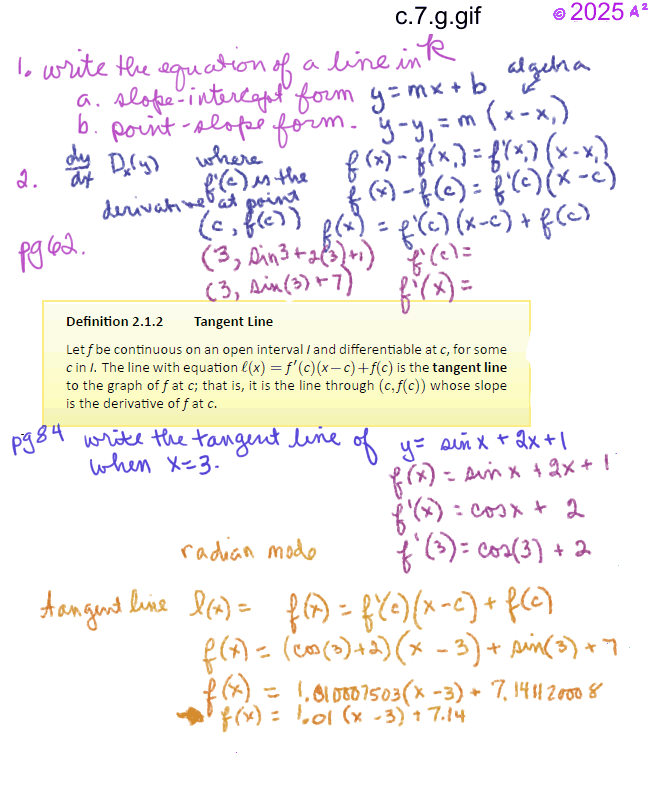 c.7.g.gif
© 2025 A²
1. write the equation of a line in
a. slope-intercept form y = mx + b algebra
b. point-slope form. y-y₁ = m (x-x₁)
2. dy/dx Dₓ(y) where f(x) - f(x₁) = f'(x₁)(x-x₁)
f'(c) is the f(x) - f(c) = f'(c)(x-c)
derivative at point
(c, f(c)) f(x) = f'(c)(x-c) + f(c)
pg 62. (3, sin3+2(3)+1) f'(c)=
(3, sin(3)+7) f'(x)=
Definition 2.1.2 Tangent Line
Let f be continuous on an open interval I and differentiable at c, for some
c in I. The line with equation ℓ(x) = f′(c)(x−c)+f(c) is the tangent line
to the graph of f at c; that is, it is the line through (c, f(c)) whose slope
is the derivative of f at c.
pg84 write the tangent line of y= sin x + 2x+1
when x=3.
f(x) = sin x + 2x + 1
f'(x) = cosx + 2
radian mode f'(3)= cos(3) + 2
tangent line l(x) = f(x) = f'(c)(x-c) + f(c)
f(x) = (cos(3)+2)(x - 3) + sin(3) + 7
f(x) = 1.010007503(x -3) + 7.141120008
f(x) = 1.01 (x -3) + 7.14